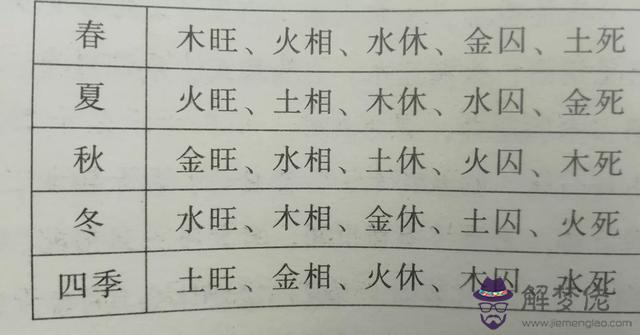 春 木旺、火相、水休、金囚、土死
夏 火旺、土相、木休、水囚、金死
秋 金旺、水相、土休、火囚、木死
冬 水旺、木相、金休、土囚、火死
四季 土旺、金相、火休、木囚、水死
解梦佬
www.jiemenglao.com